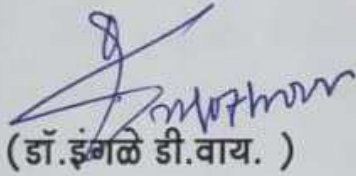 (डॉ.इंगळे डी.वाय. )